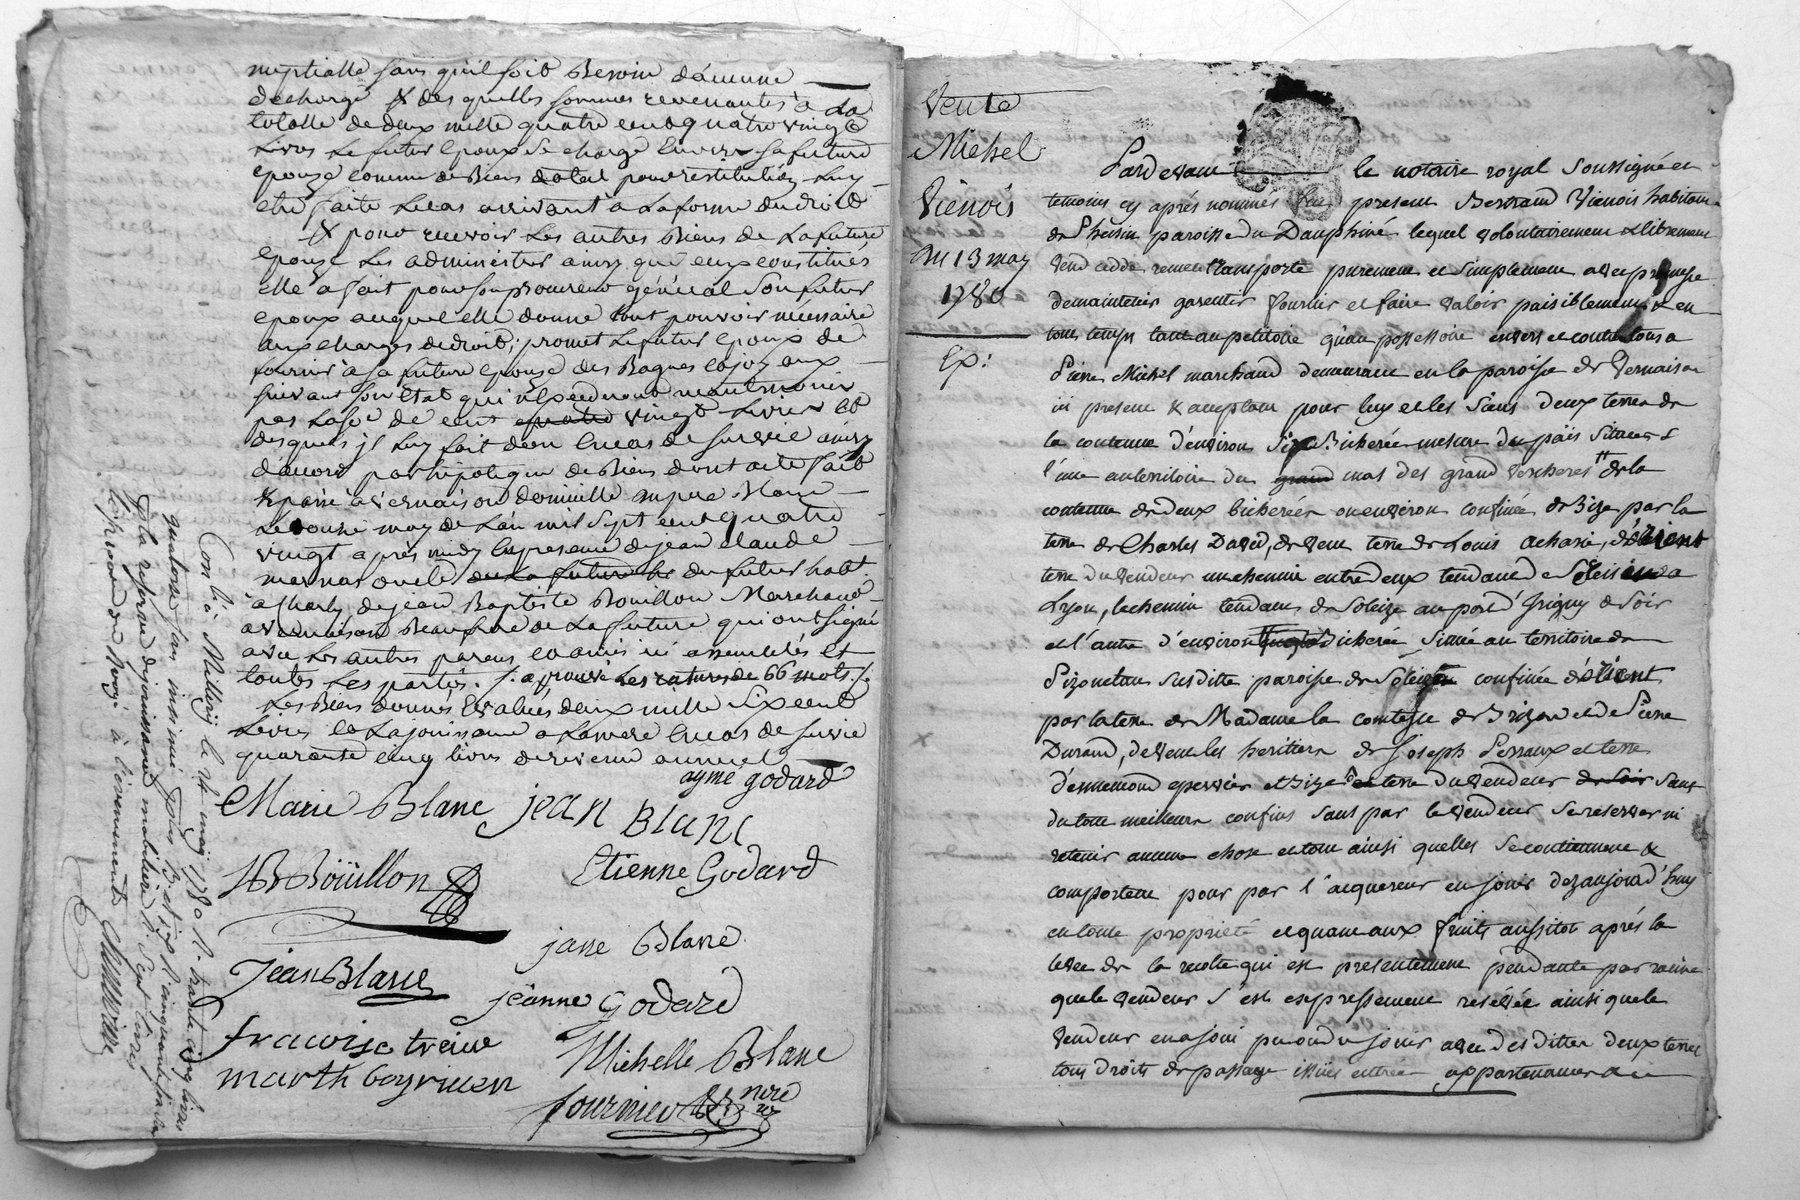 nuptialle sans qu'il soit Besoin d'aucune
decharge & des quelles sommes revenantes a La
totalle de deux mille quatre cent quatrevingt
Livres Le futur Epoux se charge Envers sa future
epouse comme de Biens dotal pour restitution Luy
etre faite Le cas arrivant a La forme du droit
& pour recevoir Les autres Biens de La future
epouse Les administrer ainsy que ceux constitués
elle a fait pour son procureur général son futur
epoux auquel elle donne tout pouvoir nécessaire
aux charges de droit; promet Le futur Epoux de
fournir a sa future epouse des Bagues et joyaux
suivant son Etat qui n'Exéderont neantmoins
pas La so de cent quatre vingt Livres et
desquels jl Luy fait don En cas de survie ainsy
d'accord par hipoteque de Biens dont acte fait
& passé a vernaison domicille
Le douze may de L'an mil sept cent quatre
vingt après midy En presence de jean claude
oncle de La future du futur habt
a charly de jean Baptiste Bouillon Marchand
a vernaison Beaufrere de La future qui ont signé
avec Les autres parens et amis ici assemblés et
toutes Les parties. /. aprouvé Les ratures de 66 mots /.
Les Biens donnés Evalués deux mille six cent
Livres et La jouissance a La mere En cas de survie
quarante cinq livres de revenu annuel
ayme godard
Marie Blanc jean Blanc
JB Boüillon Etienne Godard
jane Blanc
Jean Blanc
jeanne Godard
francoise treive
Michelle Blanc
marth goyrmen
fournier nore
Conllé a Millery le 24 may 1780 R. trente cinq livres
quatorze sous insinué
de la reserve de jouissance mobiliere R. sept livres
à l'evenement
Vente
Michel
Vienois
Du 13 may
1780
Ex:
Pardevant le notaire royal soussigné et
temoins cy aprés nommés fut present Bertrand Vienois habitant
de Pheisin paroisse du Dauphiné lequel volontairement & librement
vend cedde remet transporte purement et simplement avec promesse
de maintenir garentir fournir et faire valoir paisiblement & en
tous temps tant au petitoire qu'au possessoire envers et contre tous a
Pierre Michel marchand demeurant en la paroisse de Vernaison
ici present & acceptant pour luy et les siens deux terres de
la contenue d'environ six Bicherées mesure du païs situées
l'une au territoire du grand mas des grand vercheres de la
contenue de deux bicherées ou environ confinée de Bize par la
terre de Charles David, de vent terre de Louis Achanie, d'orient
terre du vendeur un chemin entredeux tendant de Soleise a
Lyon, le chemin tendant de Soleize au port d'Irigny de Soir
et l'autre d'environ quatre Bicherée située au territoire de
Pizonetiere susditte paroisse de Soleize confinée d'orient
par la terre de Madame la comtesse de Brizon et de Pierre
Durand, de vent les heritiers de Joseph Perraux et terre
d'ennemond epervier et Bize et terre du vendeur de soir sauf
du tout meilleurs confins sans par le vendeur se reserver ni
retenir aucune chose et tout ainsi quelles se contiennent &
comportent pour par l'acquereur en jouir dez aujourd'huy
en toute propriété et quant aux fruits aussitot aprés la
levée de la recolte qui est presentement pendante par racine
que le vendeur s'est expressement resérvée ainsi que le
vendeur en a joui pu ou du jouir avec des dittes deux terres
tous droits de passage issües entrées appartenances